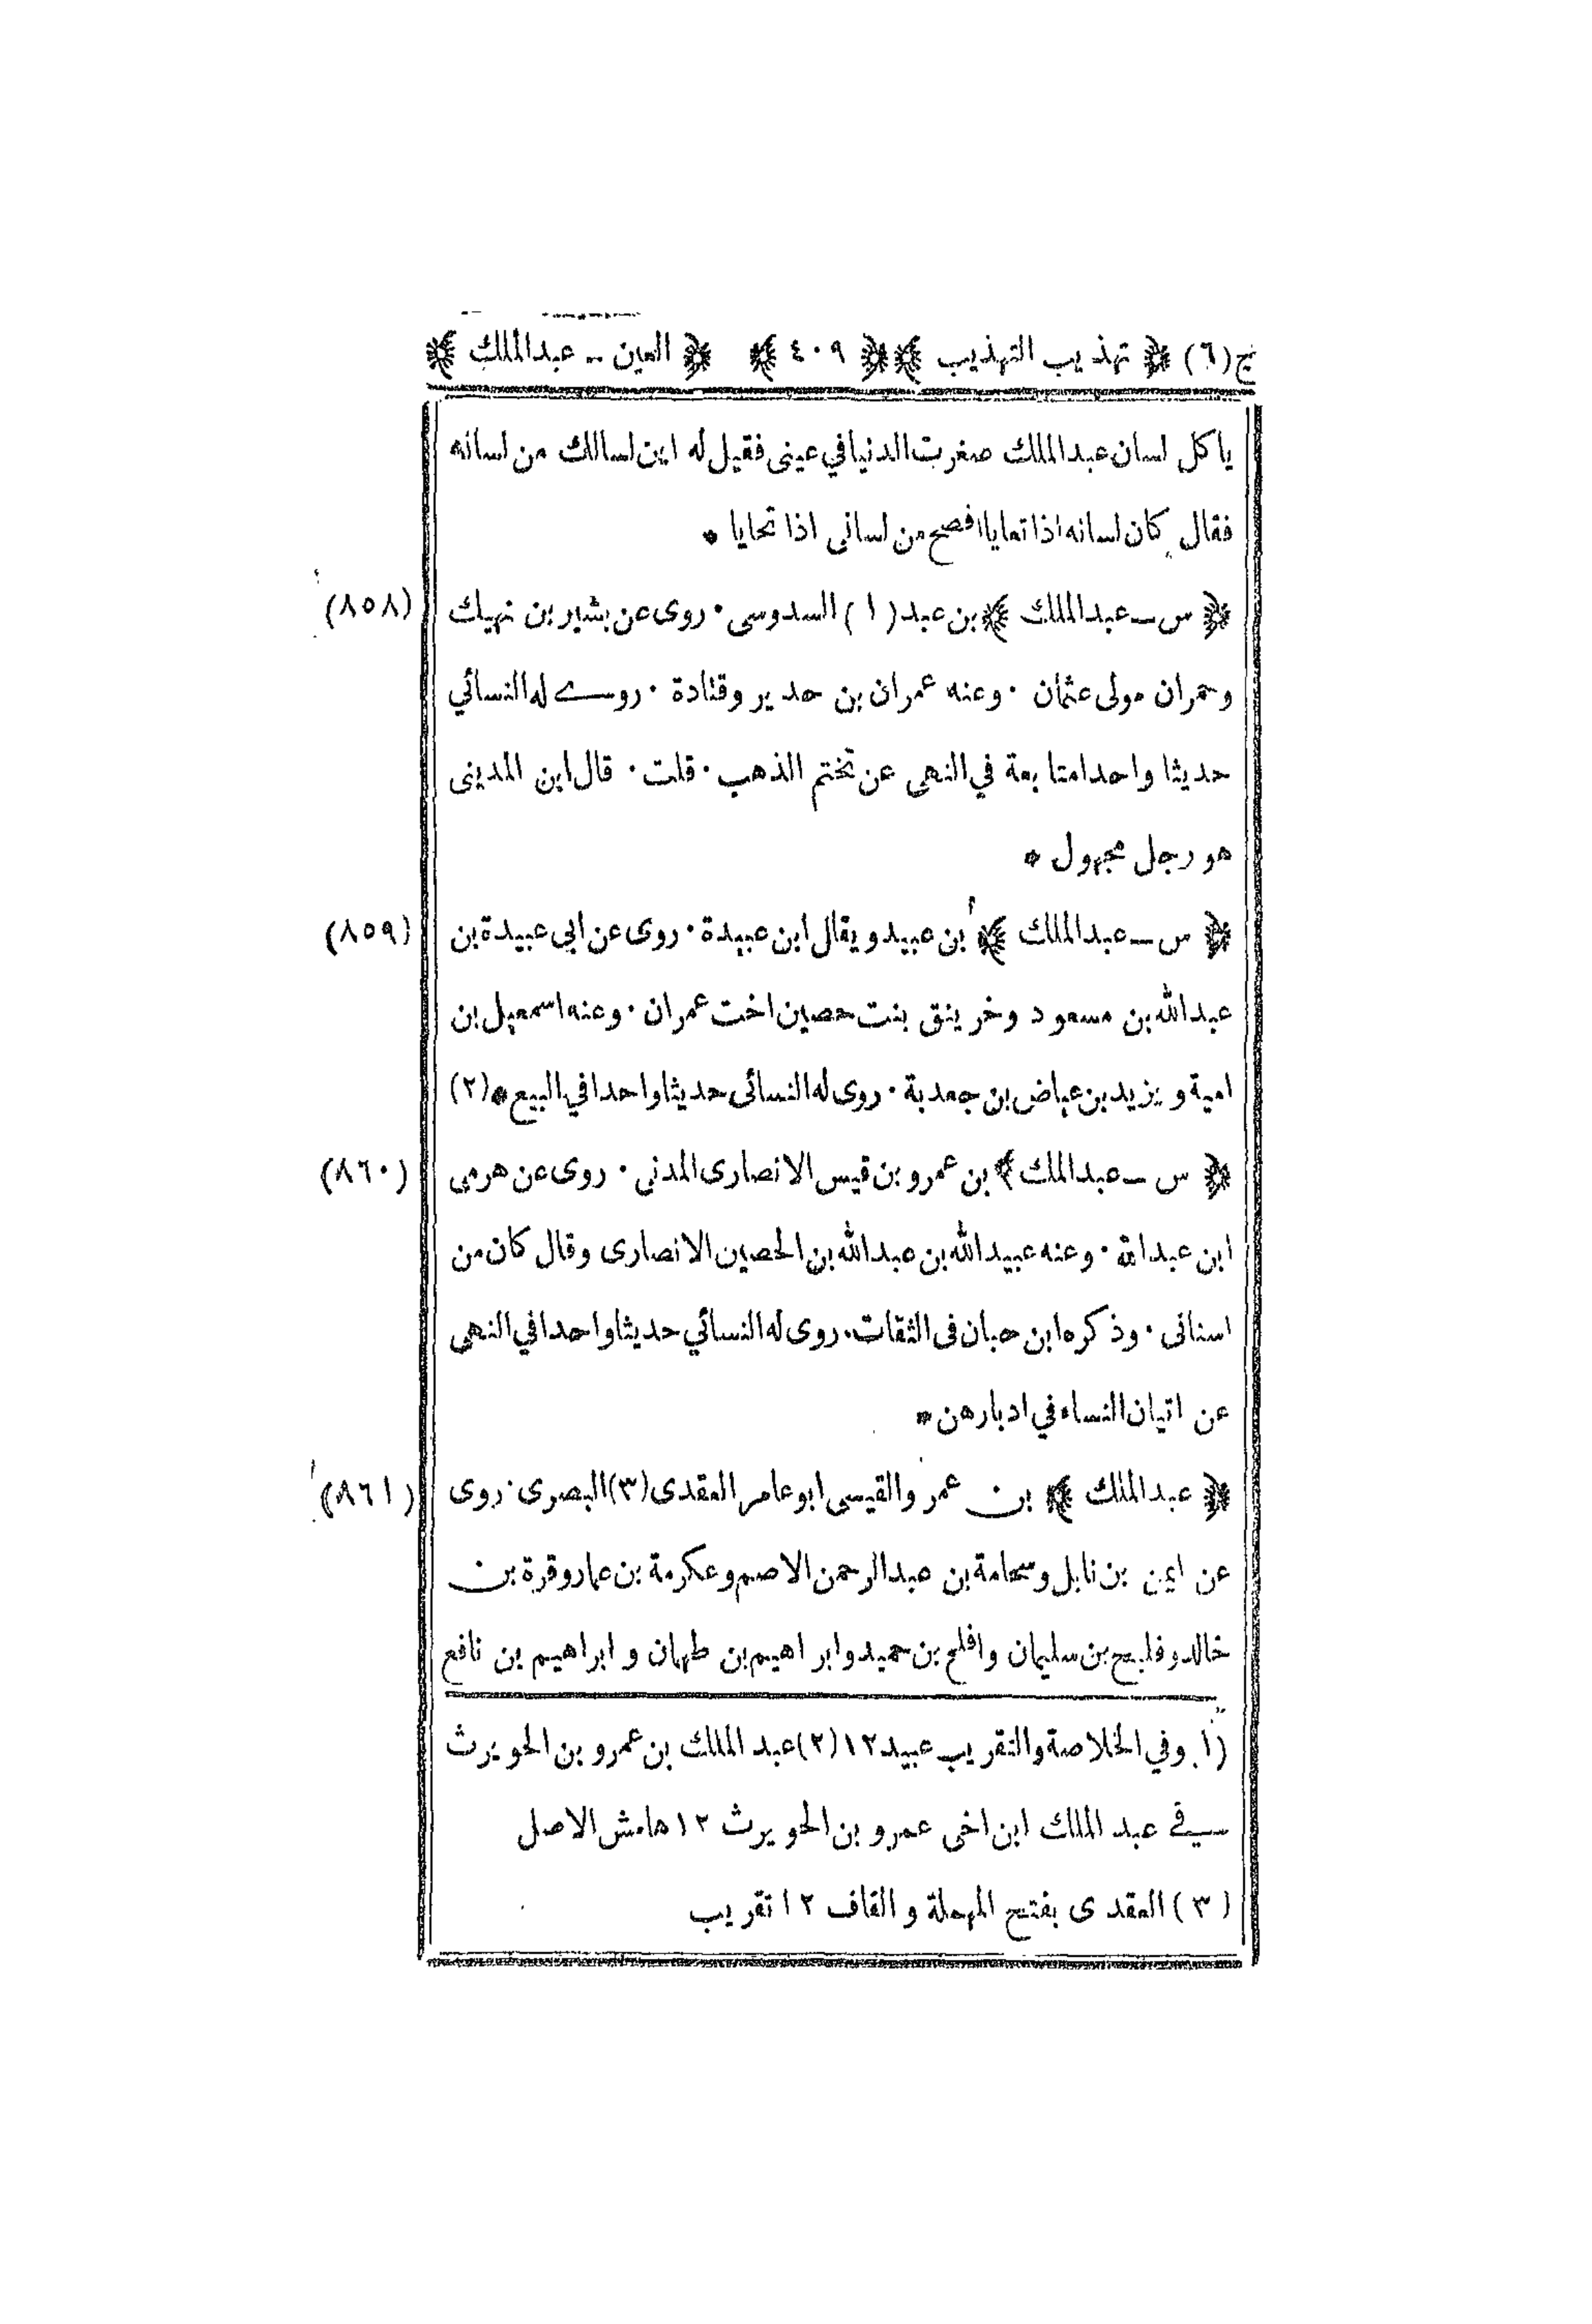 ج(٦) ﴿ تهذيب التهذيب ﴾ ﴿ ٤٠٩ ﴾ ﴿ العين .. عبدالملك ﴾
ياكل لسان عبدالملك صغرت الدنيا في عينى فقيل له اين لسالك من لسانه
فقال كان لسانه اذا تعايا افصح من لسانى اذا تحايا *
﴿ س ــ عبدالملك ﴾ بن عبد (١) السدوسى · روى عن بشير بن نهيك (٨٥٨)
وحمران مولى عثمان · وعنه عمران بن حدير وقتادة · روى له النسائي
حديثا واحدا متابعة في النهى عن تختم الذهب · قلت · قال ابن المدينى
هو رجل مجهول *
﴿ س ــ عبدالملك ﴾ بن عبيد ويقال ابن عبيدة · روى عن ابى عبيدة بن (٨٥٩)
عبدالله بن مسعود وخرينق بنت حصين اخت عمران · وعنه اسمعيل بن
امية ويزيد بن عياض بن جعدبة · روى له النسائى حديثا واحدا في البيع * (٢)
﴿ س ــ عبدالملك ﴾ بن عمرو بن قيس الانصارى المدنى · روى عن هرمى (٨٦٠)
ابن عبدالله · وعنه عبيدالله بن عبدالله بن الحصين الانصارى وقال كان من
اسنانى · وذكره ابن حبان فى الثقات · روى له النسائي حديثا واحدا في النهى
عن اتيان النساء في ادبارهن *
﴿ عبدالملك ﴾ بن عمرو القيسى ابو عامر العقدى (٣) البصرى · روى (٨٦١)
عن ايمن بن نابل وسحامة بن عبدالرحمن الاصم وعكرمة بن عمار وقرة بن
خالد وفليح بن سليمان وافلح بن حميد وابراهيم بن طهمان و ابراهيم بن نافع
(١) وفي الخلاصة والتقريب عبيد ١٢ (٢) عبد الملك بن عمرو بن الحويرث
سيفے عبد الملك ابن اخى عمرو بن الحويرث ١٢ هامش الاصل
(٣) العقدى بفتح المهملة و القاف ١٢ تقريب